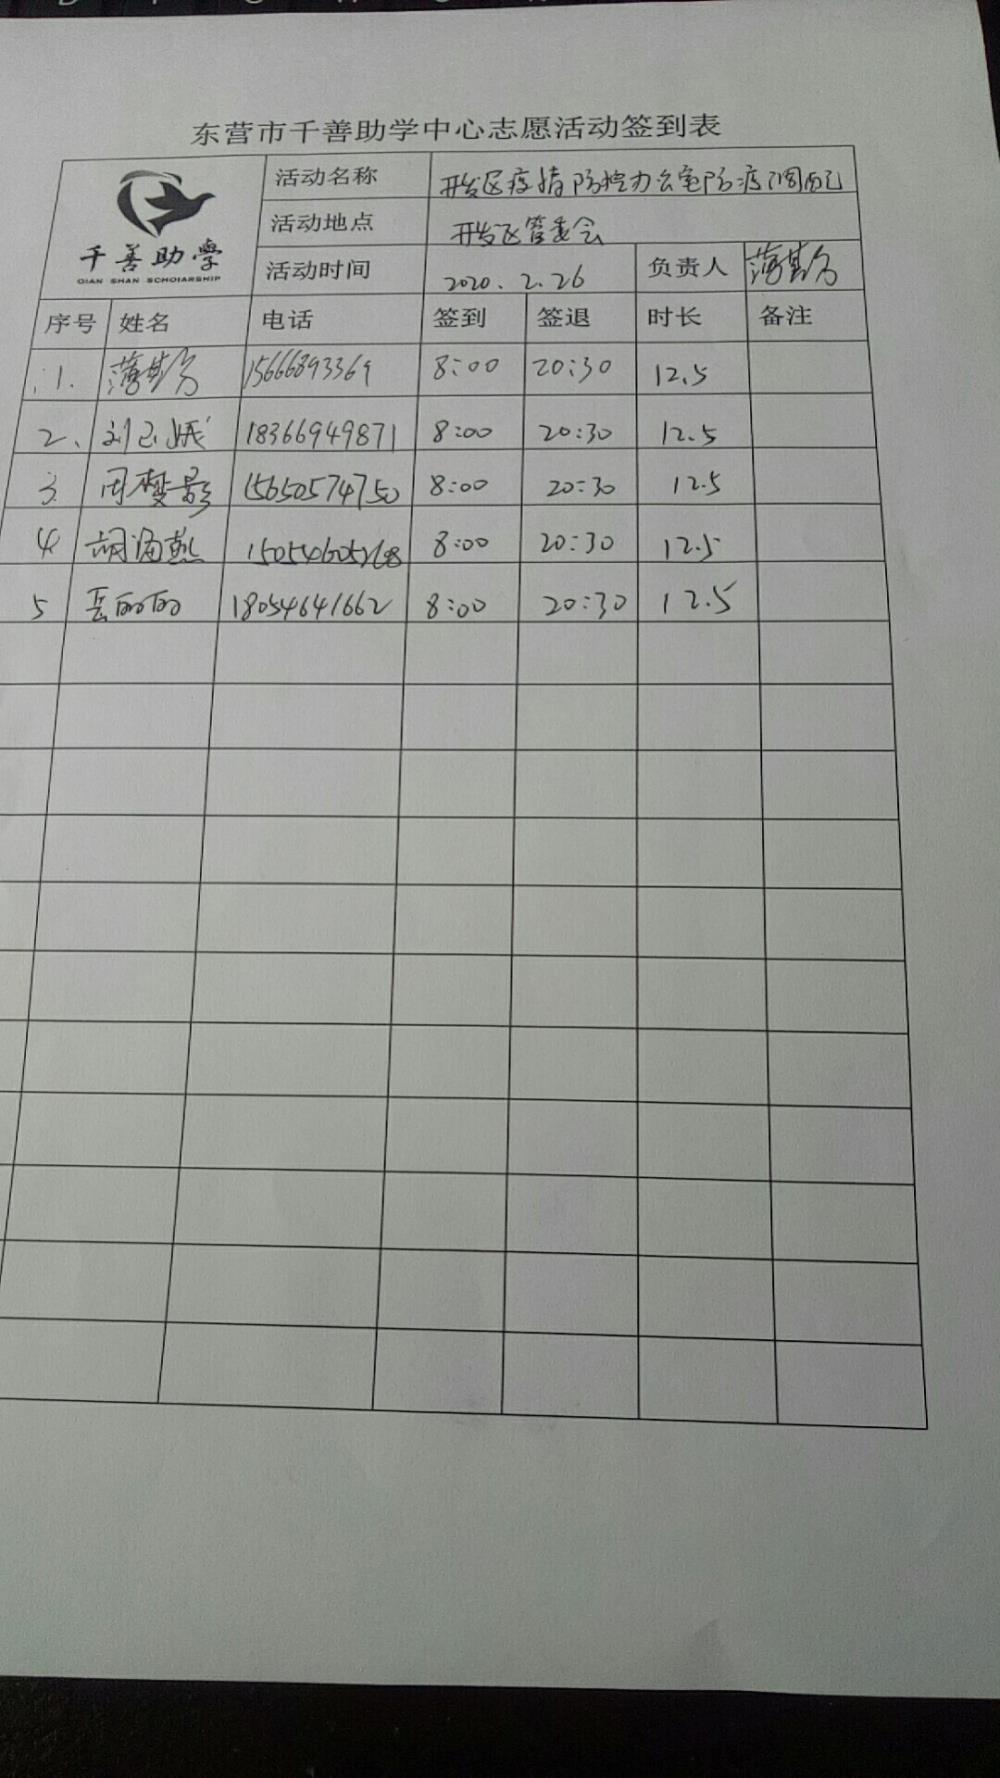 东营市千善助学中心志愿活动签到表
千善助學
QIAN SHAN SCHOlARSHIP
活动名称 开发区疫情防控办公室防疫调配
活动地点 开发区管委会
活动时间 2020.2.26 负责人
序号 姓名 电话 签到 签退 时长 备注
1. 15666893369 8:00 20:30 12.5
2、 18366949871 8:00 20:30 12.5
3. 周梦影 15650574750 8:00 20:30 12.5
4 胡海燕 8:00 20:30 12.5
5 岳丽丽 18054641662 8:00 20:30 12.5